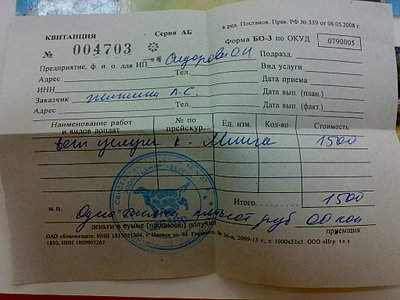 КВИТАНЦИЯ Серия АБ
в ред. Постанов. Прав. РФ № 359 от 06.05.2008 г.
№ 004703
Форма БО-3 по ОКУД 0790005
Предприятие, ф. и. о. для ИП Сидорова О И
Подразд.
Адрес Тел
Вид услуги
ИНН
Дата приема
Заказчик А.С.
Дата вып. (план.)
Адрес Тел.
Дата вып. (факт.)
Наименование работ и видов доплат № по прейскур. Ед. изм. Кол-во Стоимость
вет услуги к. 1500
Итого 1500
м.п. Одна тысяча пятьсот руб 00 коп
деньги в сумме (прописью) получил приемщик